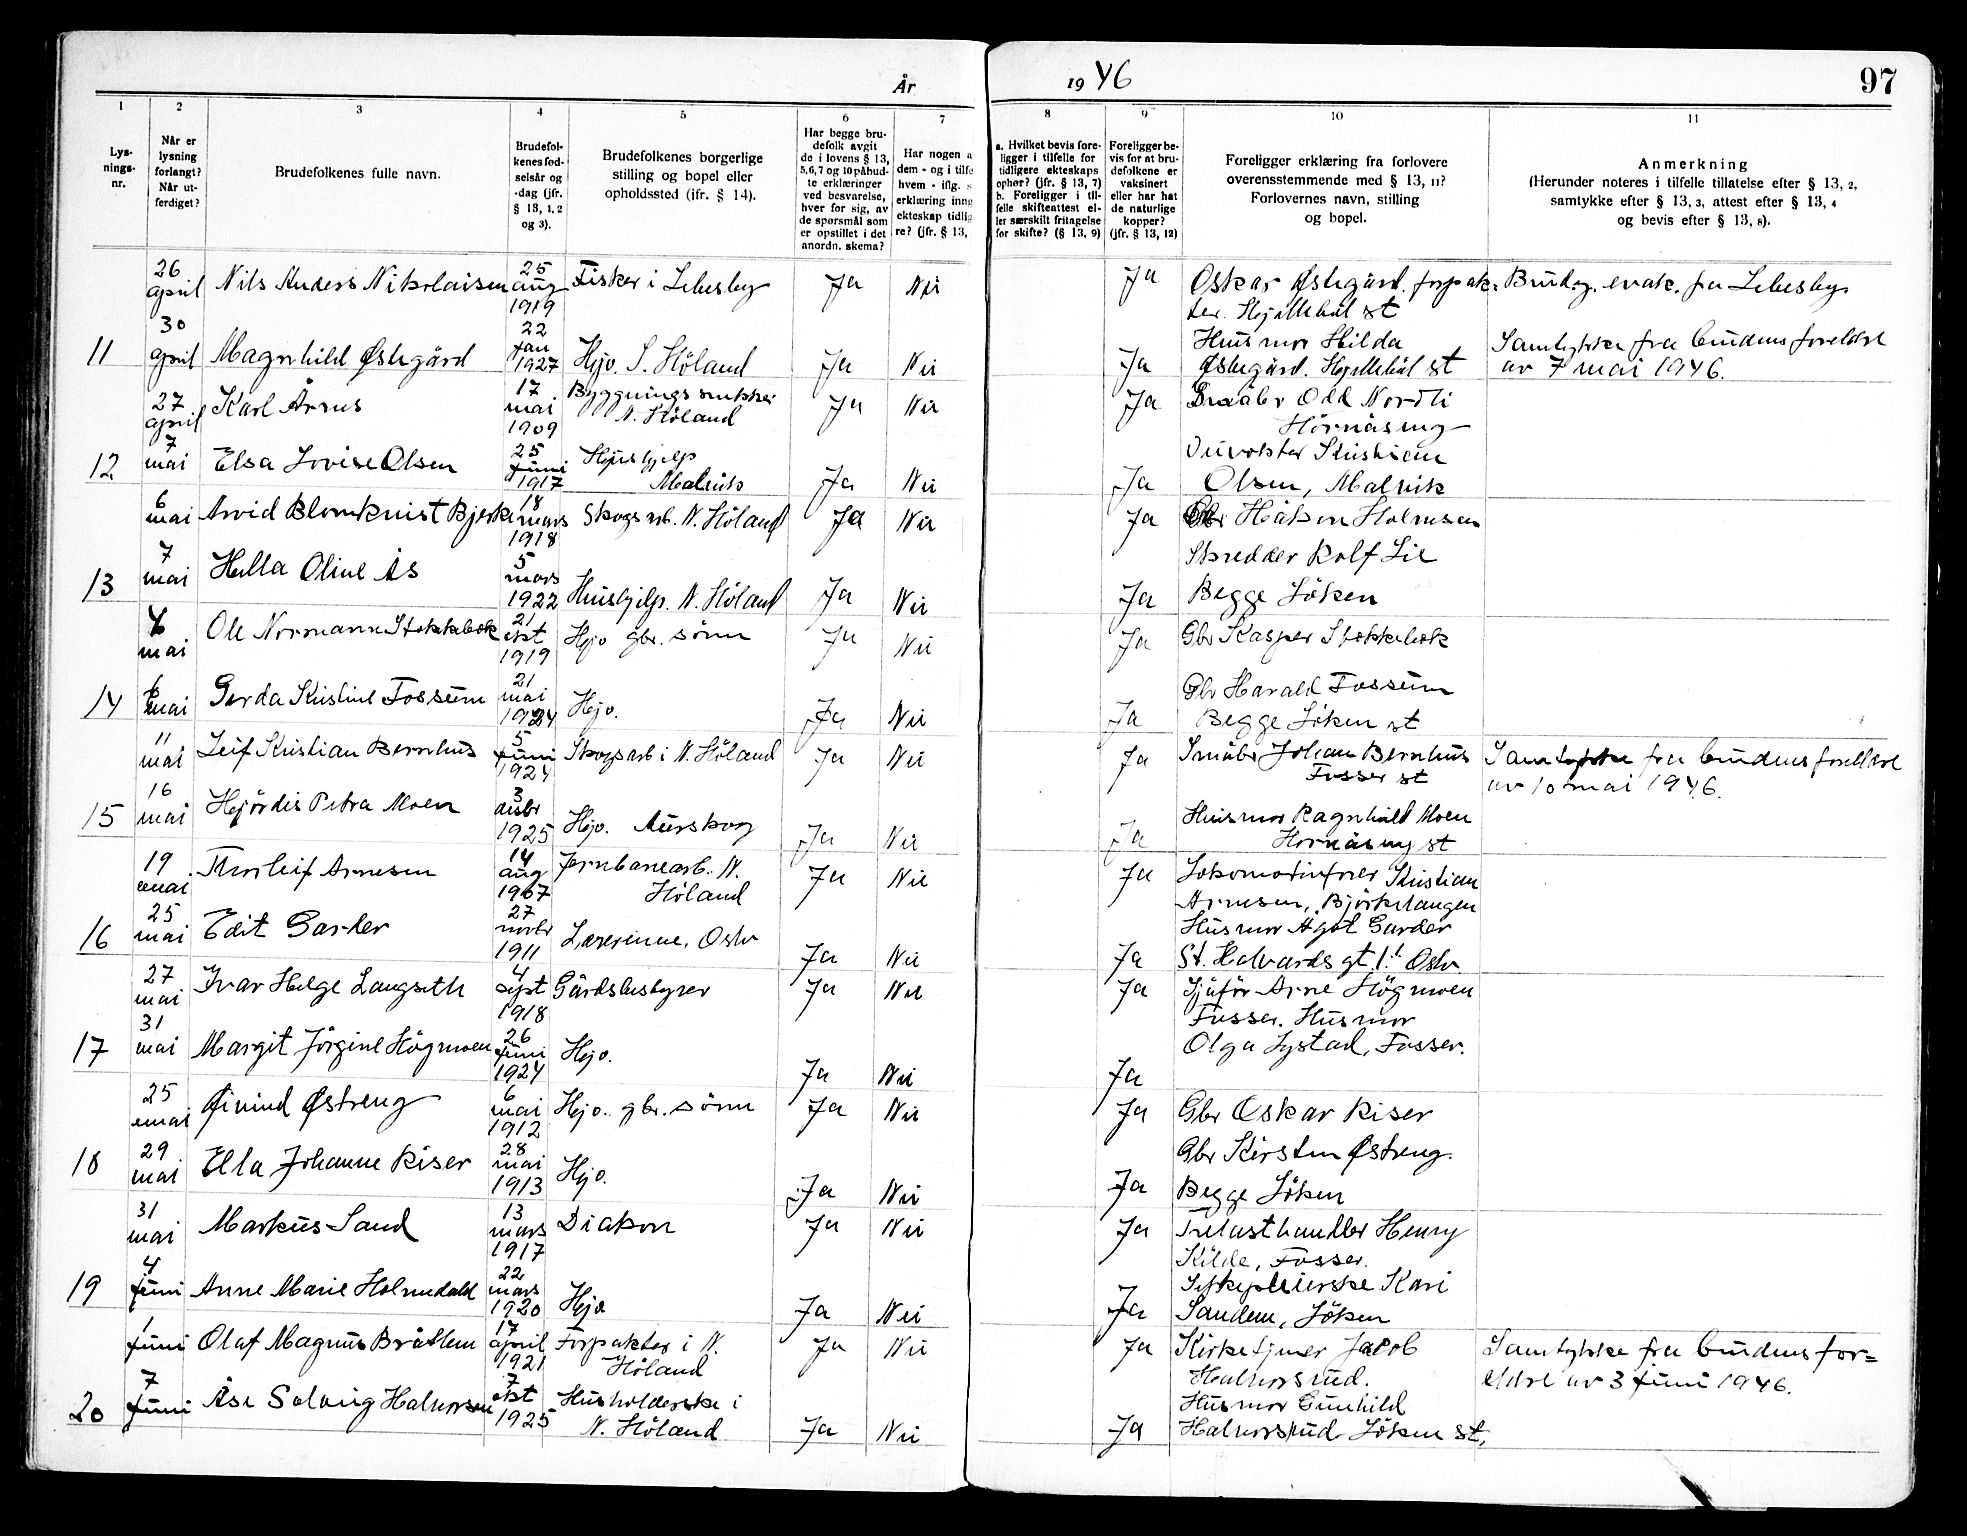 År 1946
97
1 2 3 4 5 6 7 8 9 10 11
Lys-
nings-
nr.
Når er
lysning
forlangt?
Når ut-
ferdiget?
Brudefolkenes fulle navn.
Brudefol-
kenes fød-
selsår og
-dag (jfr.
§ 13, 1, 2
og 3).
Brudefolkenes borgerlige
stilling og bopel eller
opholdssted (ifr. § 14).
Har begge bru-
defolk avgit
de i lovens § 13,
5, 6, 7 og 10 påbud-
te erklæringer
ved besvarelse,
hver for sig, av
de spørsmål som
er opstillet i det
anordn. skema?
Har nogen a
dem - og i tilfe
hvem - iflg. s
erklæring inng
ekteskap tidlig
re? (jfr. § 13,
a. Hvilket bevis fore-
ligger i tilfelle for
tidligere ekteskaps
ophør? (jfr. § 13, 7)
b. Foreligger i til-
felle skifteattest el-
ler særskilt fritagelse
for skifte? (§ 13, 9)
Foreligger be-
vis for at bru-
defolkene er
vaksinert
eller har hat
de naturlige
kopper?
(jfr. § 13, 12)
Foreligger erklæring fra forlovere
overensstemmende med § 13, 11?
Forlovernes navn, stilling
og bopel.
Anmerkning
(Herunder noteres i tilfelle tillatelse efter § 13, 2,
samtykke efter § 13, 3, attest efter § 13, 4
og bevis efter § 13, 8).
26 april Nils Anders Nikolaisen 25 aug 1919 Fisker i Lebesby Ja Nei Ja Oskar Østegård. forpak- Brudg. evak. fra Lebesby
ter. Hjellebøl st
11 30 april Magnhild Østegård 22 jan 1927 Hjv. S. Höland Ja Nei Ja Husmor Hilda Samtykke fra brudens foreldre
Østegård. Hjellebøl st av 7 mai 1946.
27 april Karl Årnes 17 mai 1909 Bygningssnekker Ja Nei Ja Småbr Odd Nordli
N. Höland Hörnåseng
12 7 mai Elsa Lovise Olsen 25 juni 1917 Hushjelp Kristian
Malvik Ja Nei Ja Olsen, Malvik
6 mai Arvid Blomkvist Bjerk 18 mars 1918 Skogsarb. N. Höland Ja Nei Ja Gbr Håkon Holmsen
13 7 mai Hella Oline Ås 5 mars 1922 Hushjelp. N. Höland Ja Nei Ja Skredder Rolf Lie
Begge Löken
6 mai Ole Normann Stokkebæk 21 okt 1919 Hjv gbr. sönn Ja Nei Ja Gbr Kasper Stokkebæk
14 6 mai Gerda Kristine Fossum 21 mai 1924 Hjv. Ja Nei Ja Gbr Harald Fossum
Begge Löken st
11 mai Leif Kristian Bernhus 5 juni 1924 Skogsarb i N. Höland Ja Nei Ja Småbr Johan Bernhus Samtykke fra brudens foreldre
Fosser st av 10 mai 1946.
15 16 mai Hjördis Petra Moen 3 desbr 1925 Hjv. Aurskog Ja Nei Ja Husmor Ragnhild Moen
Hornåseng st
19 mai Thorleif Arnesen 14 aug 1907 Jernbanearb. N. Ja Nei Ja Lokomotivfører Kristian
Höland Arnesen, Björkelangen
16 25 mai Edit Garder 27 novbr 1911 Lærerinne, Oslo Ja Nei Ja Husmor Ågot Garder
St. Halvards gt 1. Oslo
27 mai Ivar Helge Langseth 4 sept 1918 Gårdsbestyrer Ja Nei Ja Sjåför Arne Högmoen
Fosser. Husmor
17 31 mai Margit Jörgine Högmoen 26 juni 1924 Hjv. Ja Nei Ja Olga Lystad, Fosser.
25 mai Øivind Østreng 6 mai 1912 Hjv. gbr. sönn Ja Nei Ja Gbr Oskar Riser
18 29 mai Ella Johanne Riser 28 mai 1913 Hjv. Ja Nei Ja Gbr Kirsten Østreng.
Begge Löken
31 mai Markus Sand 13 mars 1917 Diakon Ja Nei Ja Trelasthandler Henry
Kilde, Fosser.
19 4 juni Anne Marie Holmedald 22 mars 1920 Hjv Ja Nei Ja Sykepleierske Kari
Sandem, Löken
1 juni Olaf Magnus Bråthem 17 april 1921 Forpakter i N. Ja Nei Ja Kirketjener Jacob Samtykke fra brudens for-
Höland Halvorsrud. eldre av 3 juni 1946.
20 7 juni Åse Solveig Halvorsen 7 okt 1925 Husholderske i Husmor Gunhild
N. Höland Ja Nei Ja Halvorsrud Löken st.